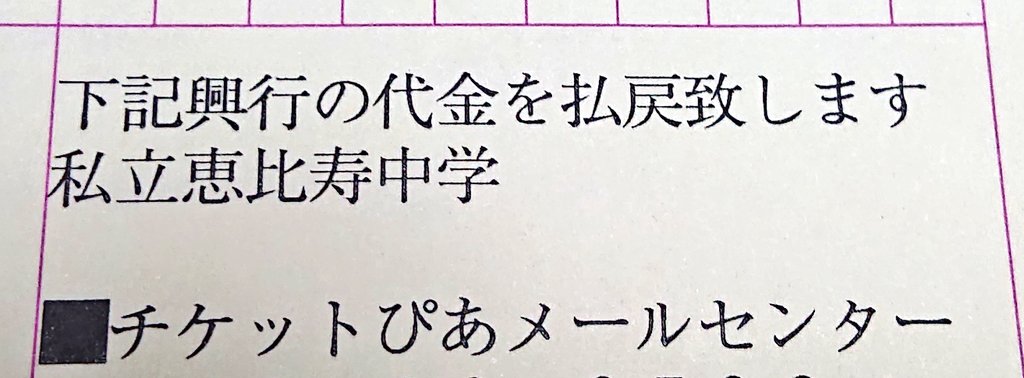 下記興行の代金を払戻致します
私立恵比寿中学
■チケットぴあメールセンター